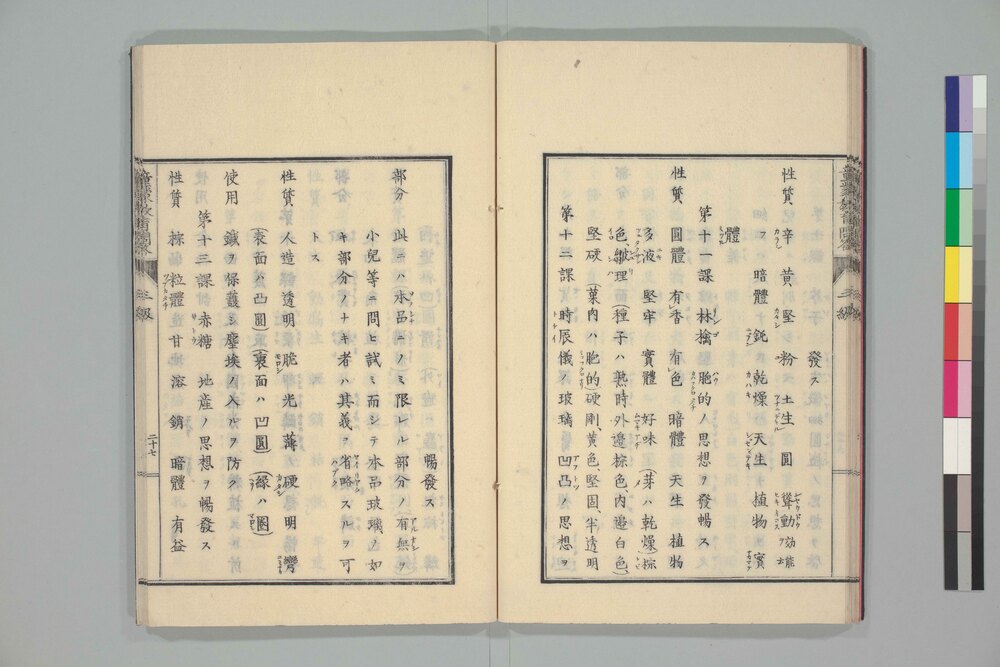 發ス
性質 辛シ 黄 堅シ 粉 土生 圓 聳動 効能ヲ
コス 暗體 鈍 乾燥 天生 植物 實
體
第十一課 林檎 胞的ノ思想ヲ發暢ス
性質 圓體 有香 有色 暗體 天生 植物
多液 堅牢 實體 好味 (芽ハ乾燥)椋
色皺理面(種子ハ熟時外邉椋色内邉白色)
堅硬(菓内ハ胞的)硬剛、黄色、堅固、半透明
第十二課 時辰儀ノ玻璃 凹凸ノ思想ヲ
暢發ス
部分 此ニハ本品ニノミ限レル部分ノ有無ヲ
小兒等ニ問ヒ試ミ而シテ本品玻璃ノ如
キ部分ノナキ者ハ其義ヲ省略スルヲ可
トス
性質 人造 透明 脆 光 薄 硬 明 彎
(表面ハ凸圓)(裏面ハ凹圓)(縁ハ圏)
使用 鍼ヲ保護シ塵埃ノ入ルヲ防ク
第十三課 赤糖 地産ノ思想ヲ暢發ス
性質 椋 粒體 甘 溶 銷 暗體 有益
三級
二十七